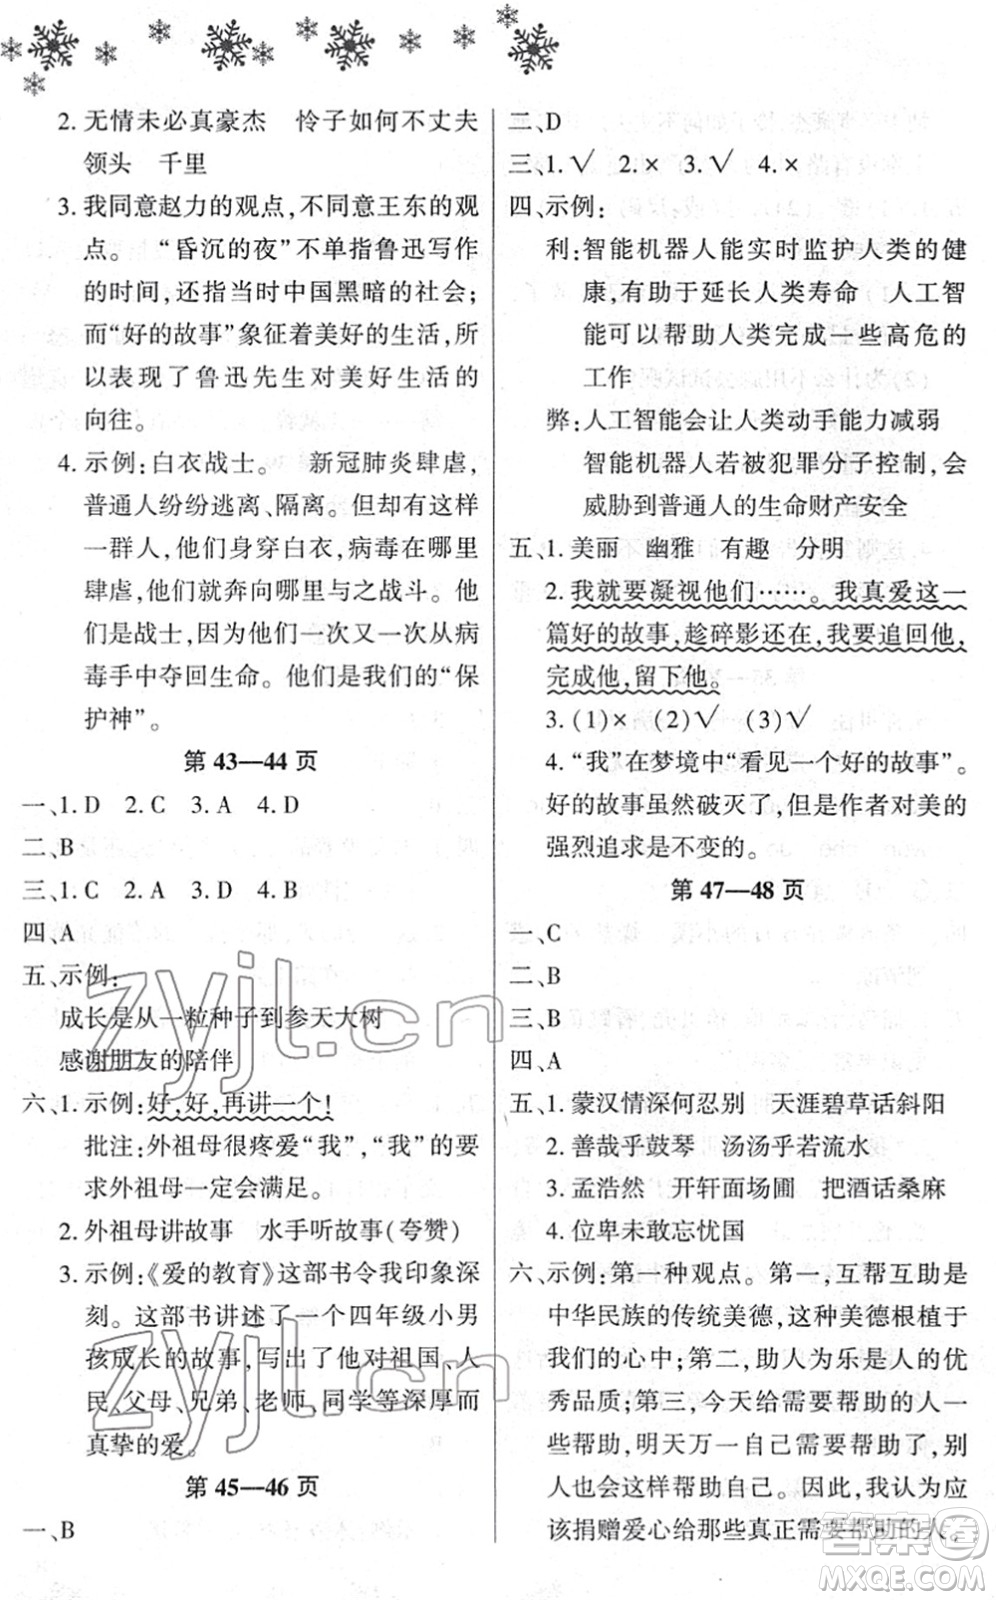 2. 无情未必真豪杰　怜子如何不丈夫
领头　千里
3. 我同意赵力的观点,不同意王东的观
点。“昏沉的夜”不单指鲁迅写作
的时间,还指当时中国黑暗的社会;
而“好的故事”象征着美好的生活,所
以表现了鲁迅先生对美好生活的
向往。
4. 示例:白衣战士。　新冠肺炎肆虐,
普通人纷纷逃离、隔离。但却有这样
一群人,他们身穿白衣,病毒在哪里
肆虐,他们就奔向哪里与之战斗。他
们是战士,因为他们一次又一次从病
毒手中夺回生命。他们是我们的“保
护神”。
第 43—44 页
一、1. D　2. C　3. A　4. D
二、B
三、1. C　2. A　3. D　4. B
四、A
五、示例:
成长是从一粒种子到参天大树
感谢朋友的陪伴
六、1. 示例:好,好,再讲一个!
批注:外祖母很疼爱“我”,“我”的要
求外祖母一定会满足。
2. 外祖母讲故事　水手听故事(夸赞)
3. 示例:《爱的教育》这部书令我印象深
刻。这部书讲述了一个四年级小男
孩成长的故事,写出了他对祖国、人
民、父母、兄弟、老师、同学等深厚而
真挚的爱。
第 45—46 页
一、B
二、D
三、1. √　2. ×　3. √　4. ×
四、示例:
利:智能机器人能实时监护人类的健
康,有助于延长人类寿命　人工智
能可以帮助人类完成一些高危的
工作
弊:人工智能会让人类动手能力减弱
智能机器人若被犯罪分子控制,会
威胁到普通人的生命财产安全
五、1. 美丽　幽雅　有趣　分明
2. 我就要凝视他们……。我真爱这一
篇好的故事,趁碎影还在,我要追回他,
完成他,留下他。
3. (1)×　(2)√　(3)√
4. “我”在梦境中“看见一个好的故事”。
好的故事虽然破灭了,但是作者对美的
强烈追求是不变的。
第 47—48 页
一、C
二、B
三、B
四、A
五、1. 蒙汉情深何忍别　天涯碧草话斜阳
2. 善哉乎鼓琴　汤汤乎若流水
3. 孟浩然　开轩面场圃　把酒话桑麻
4. 位卑未敢忘忧国
六、示例:第一种观点。第一,互帮互助是
中华民族的传统美德,这种美德根植于
我们的心中;第二,助人为乐是人的优
秀品质;第三,今天给需要帮助的人一
些帮助,明天万一自己需要帮助了,别
人也会这样帮助自己。因此,我认为应
该捐赠爱心给那些真正需要帮助的人。
zyjl.cn
zyjl.cn
答案圈
MXQE.COM